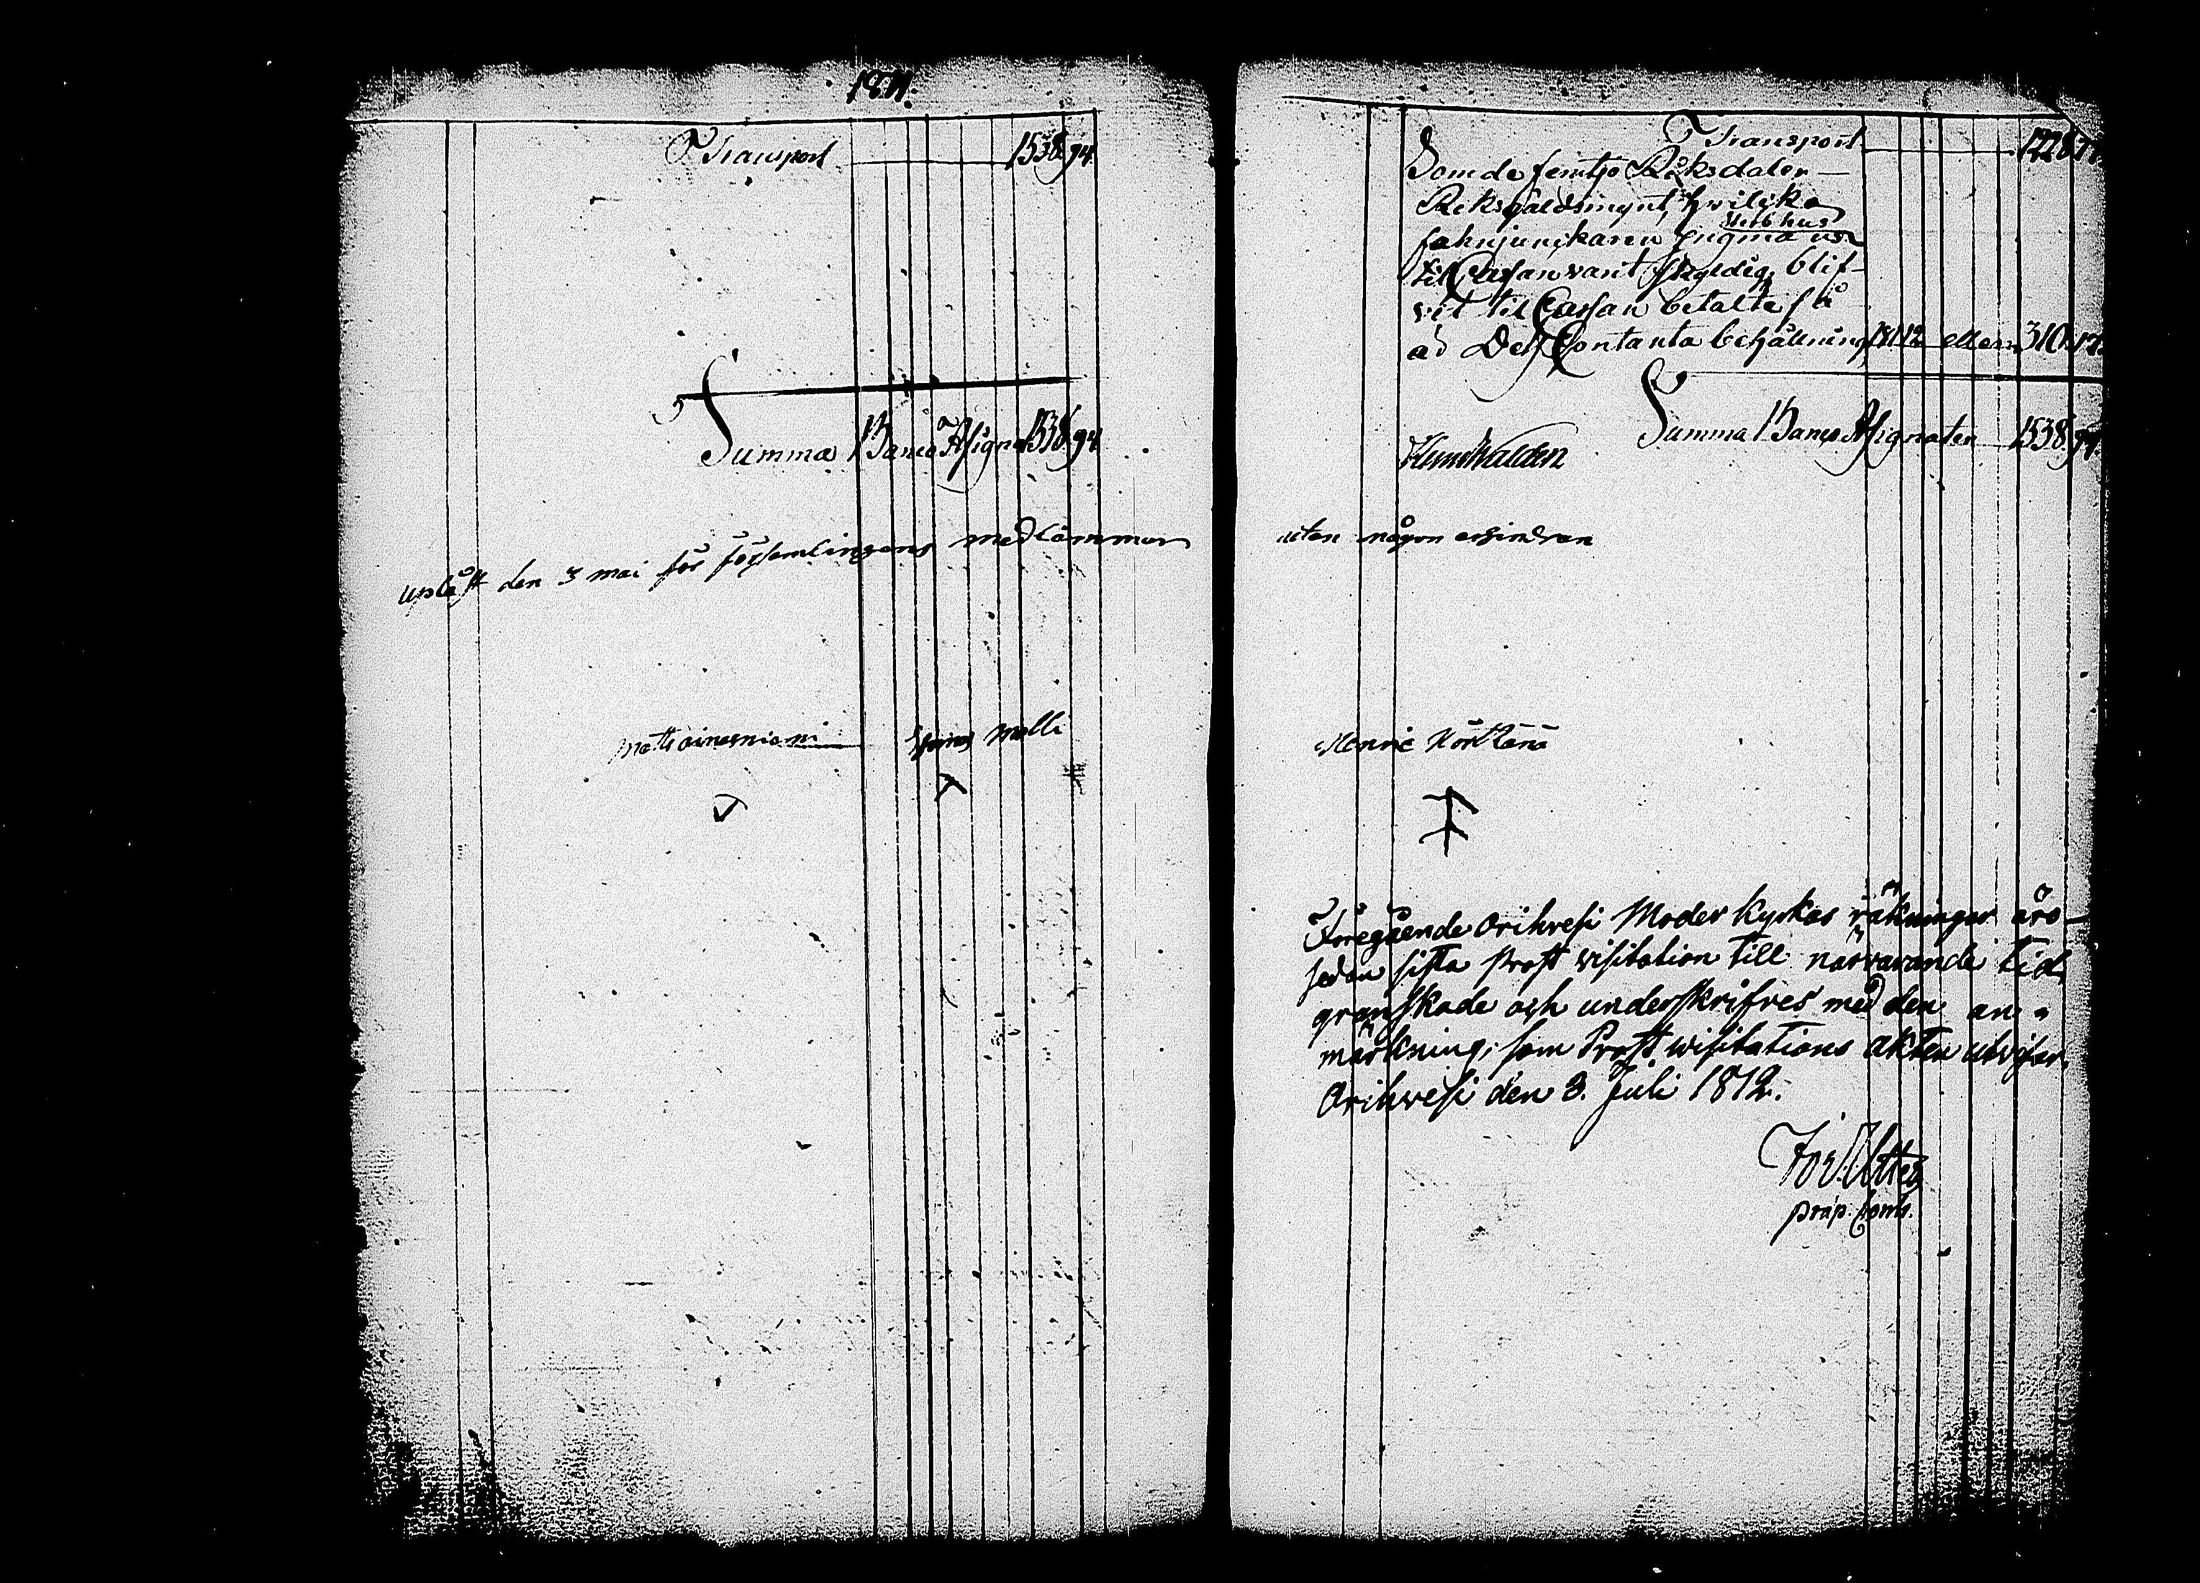 1811.
Transport 1538 94.
Summa Banco Assigna 1538 94
upläst den 3 mai för församlingens medlemmar
Matts
Transport 1228
Som de femtjo Riksdaler
Riksgäldsmynt, hvilcka
Sterbhus
fahnjunckaren
til Cassan varit skyldig, blif-
vit til Cassan betalte så
är Dess Contanta behållning eller 310. 17.
Summa Banco Assignater 1538. 94.
utan någon erhindran
Henric
Föregående Orihvesi Moder Kyrkas räkningar äro
sedan sista Prost visitation till närvarande tid,
granskade och underskrifves med den an-
märkning, som Prost visitations akten utvisar.
Orihvesi den 3. Juli 1812.